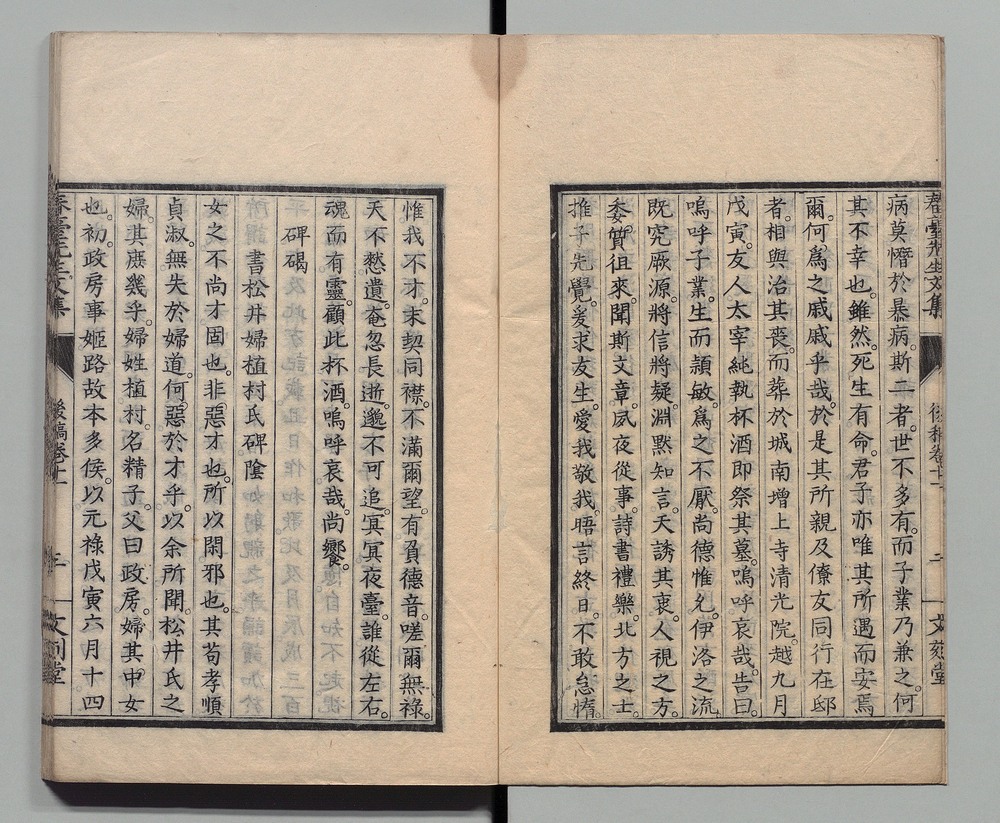 春臺先生文集
後稿卷十一
二
文刻堂
病莫憯於暴病。斯二者。世不多有。而子業乃兼之。何
其不幸也。雖然。死生有命。君子亦唯其所遇而安焉
爾。何爲之戚戚乎哉。於是其所親及僚友同行在邸
者。相與治其喪。而葬於城南增上寺清光院。越九月
戊寅。友人太宰純執杯酒即祭其墓。嗚呼哀哉。告曰。
嗚呼子業。生而頴敏。爲之不厭。尚德惟允。伊洛之流
既究厥源。將信將疑。淵默知言。天誘其衷。人視之方。
委質徂來。聞斯文章。夙夜從事。詩書禮樂。北方之士。
推子先覺。爰求友生。愛我敬我。晤言終日。不敢怠惰。
惟我不才。末契同襟。不滿爾望。有負德音。嗟爾無祿。
天不憗遺。奄忽長逝。邈不可追。冥冥夜臺。誰從左右。
魂而有靈。顧此杯酒。嗚呼哀哉。尚饗。
碑碣
書松井婦植村氏碑陰
女之不尚才固也。非惡才也。所以閑邪也。其苟孝順
貞淑。無失於婦道。何惡於才乎。以余所聞。松井氏之
婦。其庶幾乎。婦姓植村。名精子。父曰政房。婦其中女
也。初。政房事姬路故本多侯。以元祿戊寅六月十四
春臺先生文集
後稿卷十一
三
文刻堂